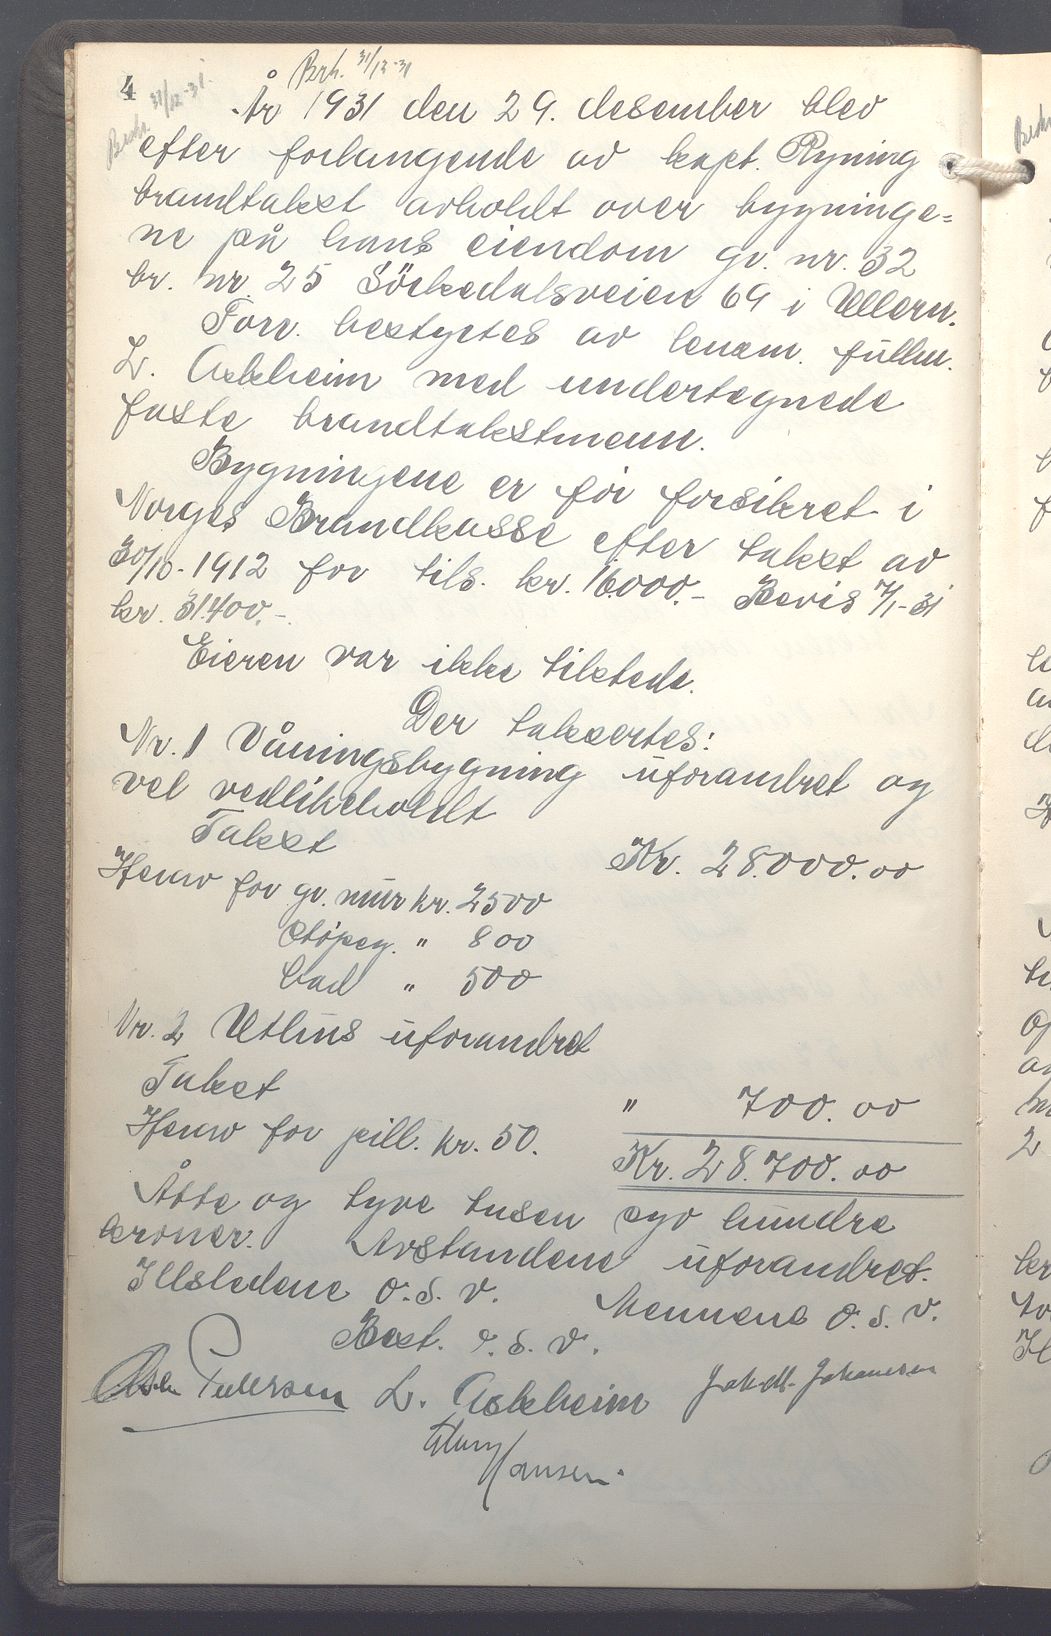 4
Besk. 31/12-31
Besk. 31/12-31
År 1931 den 29. desember blev
efter forlangende av kapt. Ryning
brandtakst avholdt over bygninge=
ne på hans eiendom gr. nr. 32
br. nr. 25 Sörkedalsveien 69 i Ullern.
Forr. bestyrtes av lensm. fullm.
L. Askheim med undertegnede
faste brandtakstmenn.
Bygningene er för forsikret i
Norges Brandkasse efter takst av
30/10-1912 for tils. kr. 16000.- Bevis 7/1-31
kr. 31400.-
Eieren var ikke tilstede.
Der takseertes:
Nr. 1 Våningsbygning uforandret og
vel vedlikeholdt
Takst Kr. 28.000.00
Herav for gr. mur kr. 2500
Støpeg. " 800
bad " 500
Nr. 2 Uthus uforandret
Takst " 700.00
Herav for pill. kr. 50.
Kr. 28.700.00
Åtte og tyve tusen syv hundre
kroner. Avstandene uforandret.
Ildstedene o.s.v. Mennene o.s.v.
Best. o.s.v.
Pettersen L. Askheim Joh. M. Johansen
Hansen.